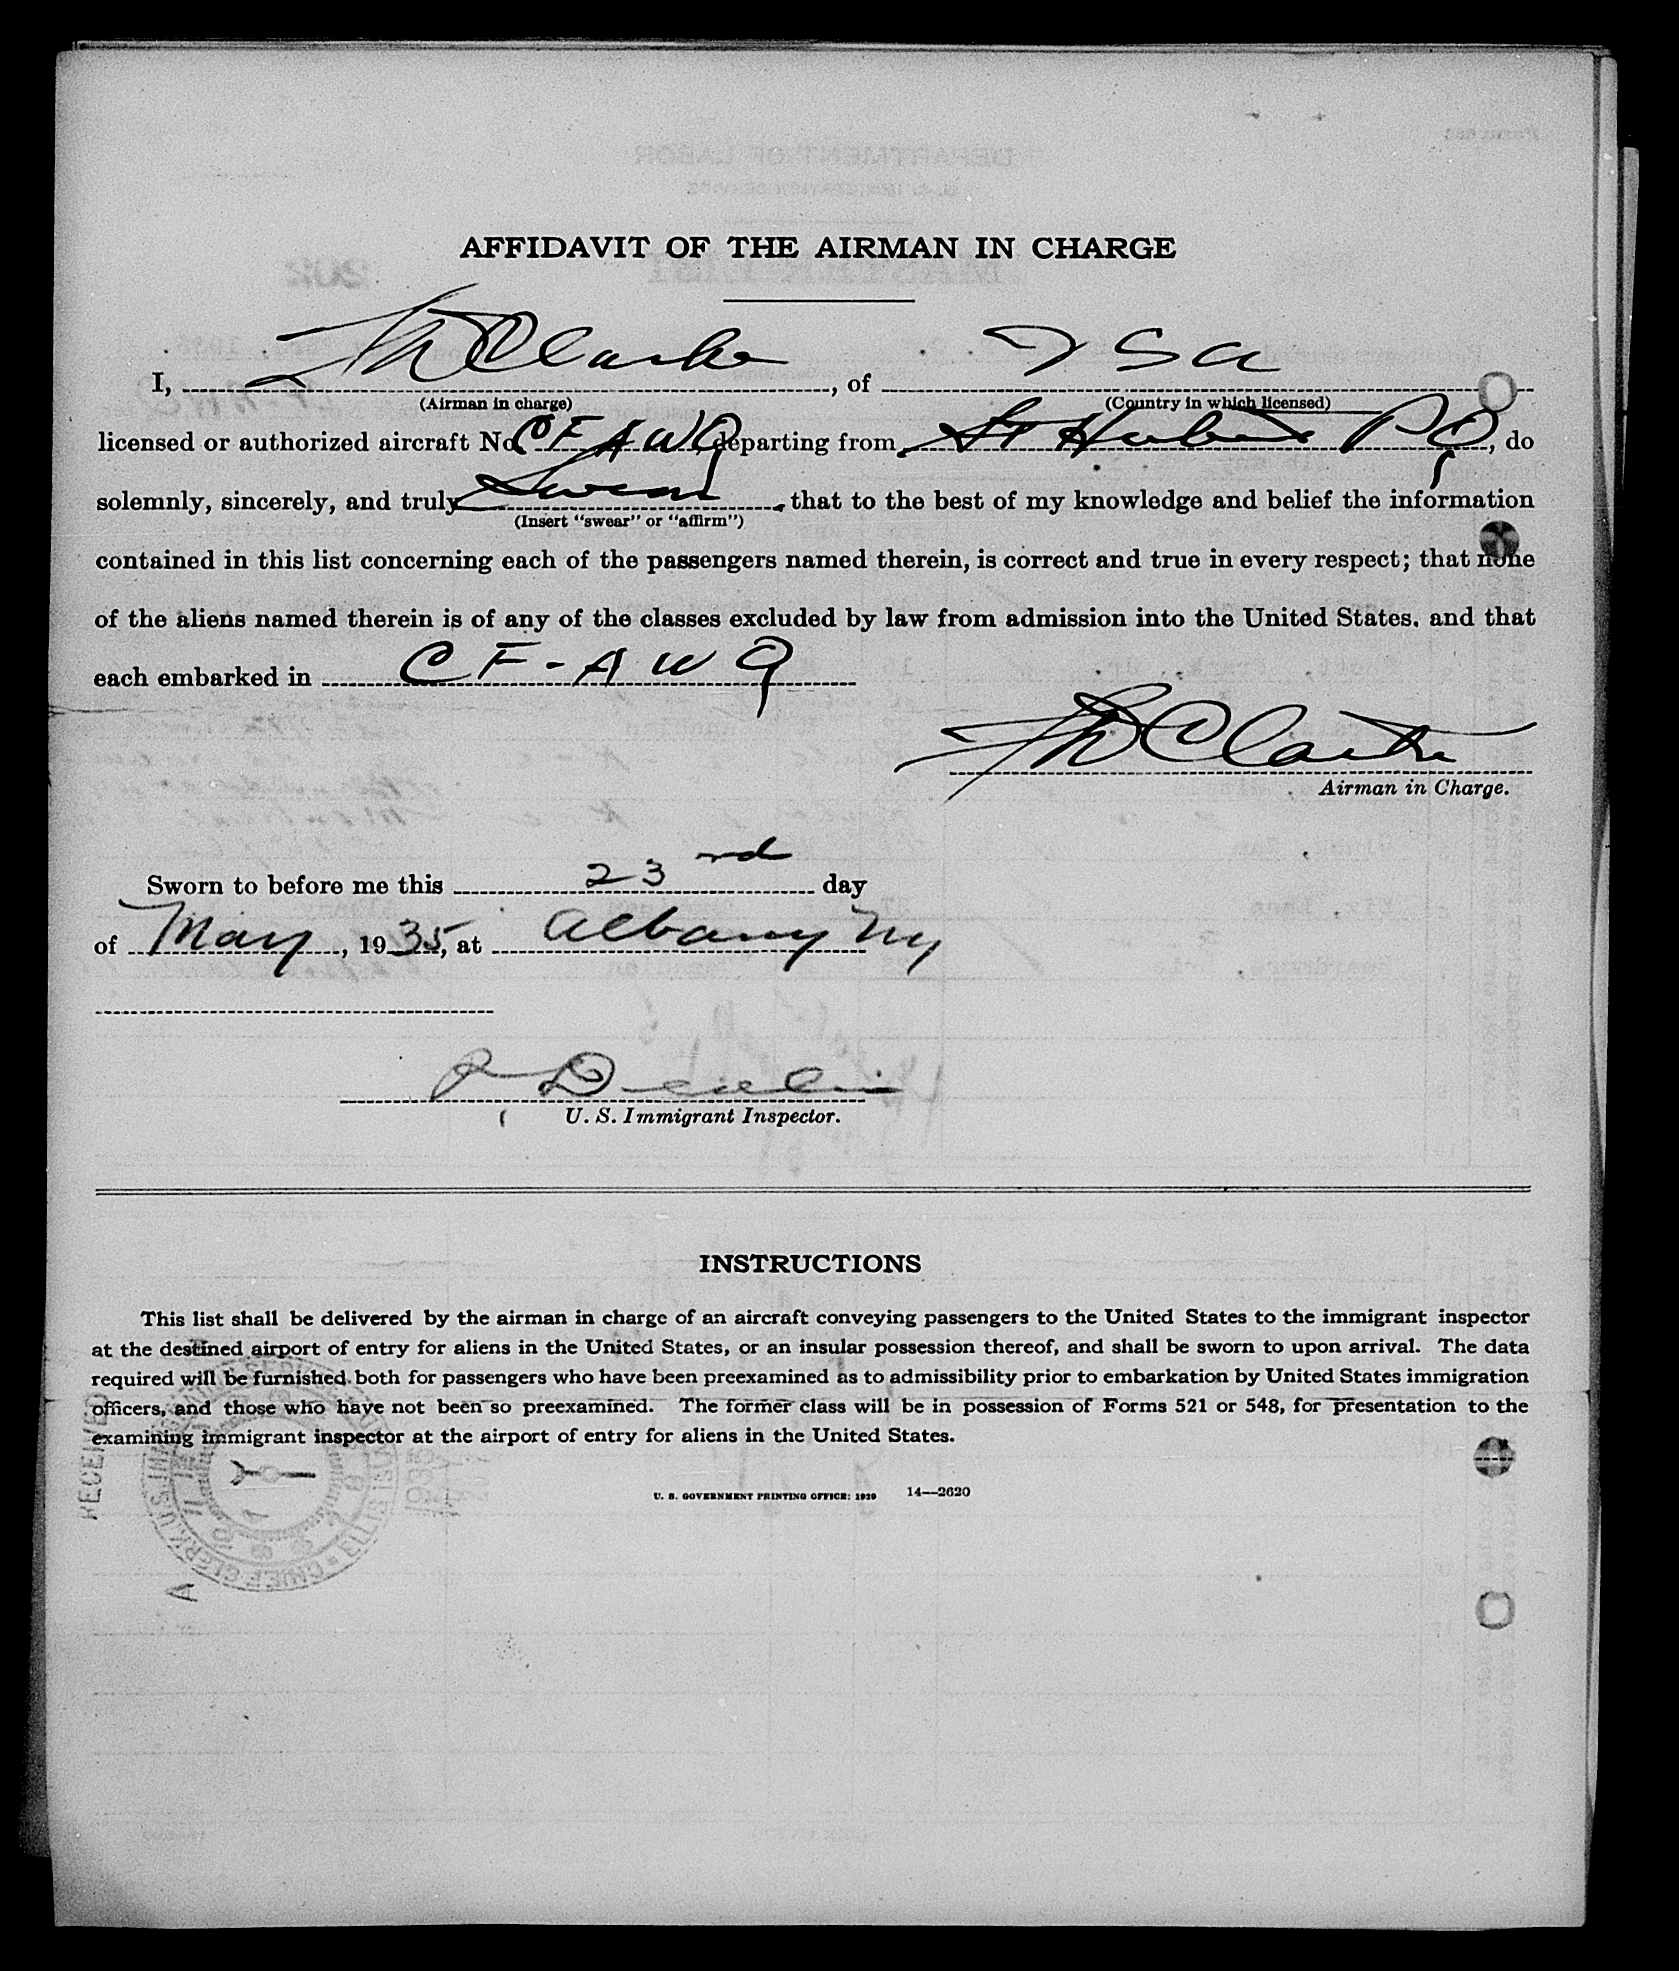 AFFIDAVIT OF THE AIRMAN IN CHARGE
I, Clarke, of
(Airman in charge) (Country in which licensed)
licensed or authorized aircraft No. CF AWQ, departing from St Hubert PQ, do
solemnly, sincerely, and truly Swear, that to the best of my knowledge and belief the information
(Insert "swear" or "affirm")
contained in this list concerning each of the passengers named therein, is correct and true in every respect; that none
of the aliens named therein is of any of the classes excluded by law from admission into the United States, and that
each embarked in CF-AWQ
Clarke
Airman in Charge.
Sworn to before me this 23rd day
of May, 1935, at Albany Ny
U. S. Immigrant Inspector.
INSTRUCTIONS
This list shall be delivered by the airman in charge of an aircraft conveying passengers to the United States to the immigrant inspector
at the destined airport of entry for aliens in the United States, or an insular possession thereof, and shall be sworn to upon arrival. The data
required will be furnished both for passengers who have been preexamined as to admissibility prior to embarkation by United States immigration
officers, and those who have not been so preexamined. The former class will be in possession of Forms 521 or 548, for presentation to the
examining immigrant inspector at the airport of entry for aliens in the United States.
U. S. GOVERNMENT PRINTING OFFICE: 1929 14—2620
RECEIVED